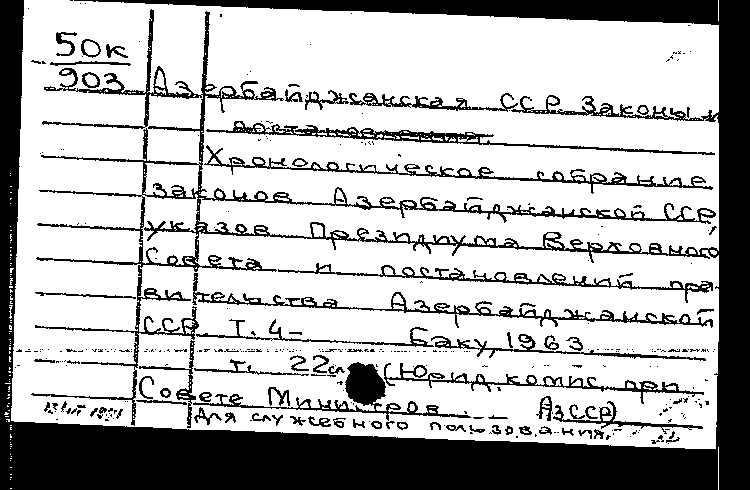 50к
903
Азербайджанская ССР. Законы и
постановления.
Хронологическое собрание
законов Азербайджанской ССР,
указов Президиума Верховного
Совета и постановлений пра-
вительства Азербайджанской
ССР. Т. 4- Баку, 1963.
т. 22см (Юрид. комис. при
Совете Министров АзССР)
Для служебного пользования.